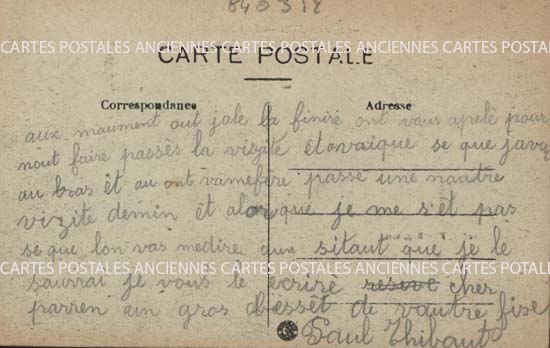 840318
CARTES POSTALES ANCIENNES CARTES POSTALES ANCIENNES CARTES POSTALES
CARTE POSTALE
Correspondance
Adresse
aux maument out jale la finire ont vous apelé pour
nout faire passés la vizite étavaique se que javai
au bras et au ont vamefere passé une nautre
vizite demin et alor que je me s'et pas
se que lon vas medire sitaut que je le
CARTES POSTALES ANCIENNES CARTES POSTALES ANCIENNES CARTES POSTALES
saurrai je vous le ecrire cher
parren un gros bessêt de vautre fise
Paul Thibaut